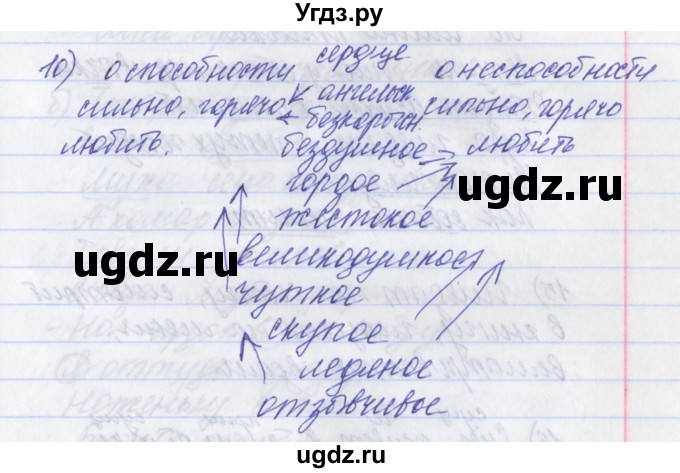 Угдз.ру
10) о способности сердце о неспособности
сильно, горячо ангельск. сильно, горячо
безкорысн.
любить. бездушное любить
гордое
ugdz.ru
жестокое
ugdz.ru
великодушное
чуткое
скупое
ледяное
отзывчивое
Угдз.ру